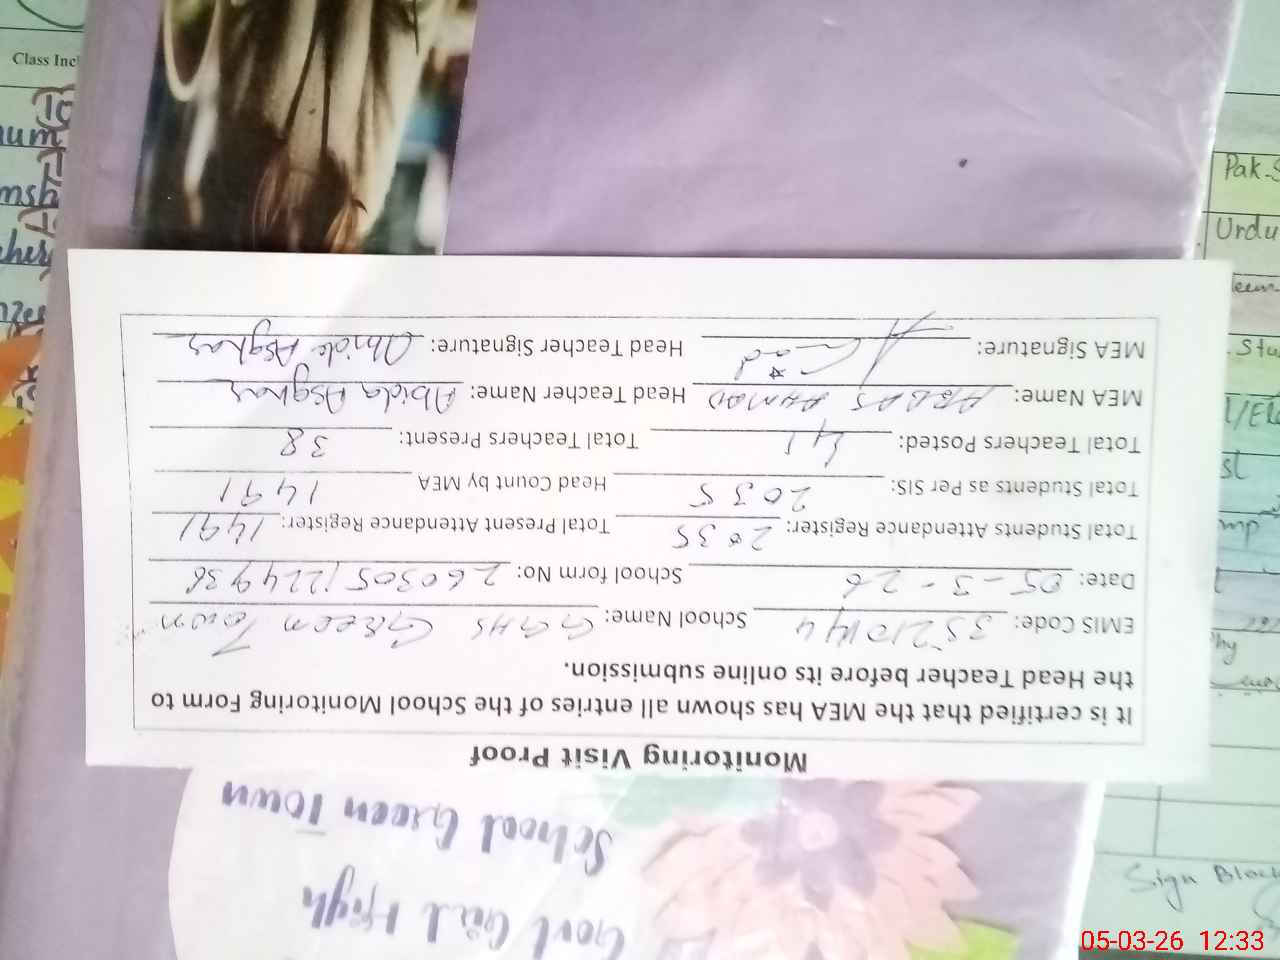 Monitoring Visit Proof
It is certified that the MEA has shown all entries of the School Monitoring Form to
the Head Teacher before its online submission.
EMIS Code: 35210144 School Name: GGHS Green Town
Date: 05-3-26 School form No: 2603051224936
Total Students Attendance Register: 2035 Total Present Attendance Register: 1491
Total Students as Per SIS: 2035 Head Count by MEA 1491
Total Teachers Posted: 41 Total Teachers Present: 38
MEA Name: ABBAS AHMAD Head Teacher Name: Abida Asghar
MEA Signature: Head Teacher Signature: Abida Asghar
Govt Girl High
School Green Town
Class Incl
10
Pak-S
Urdu
Sign Block
05-03-26 12:33